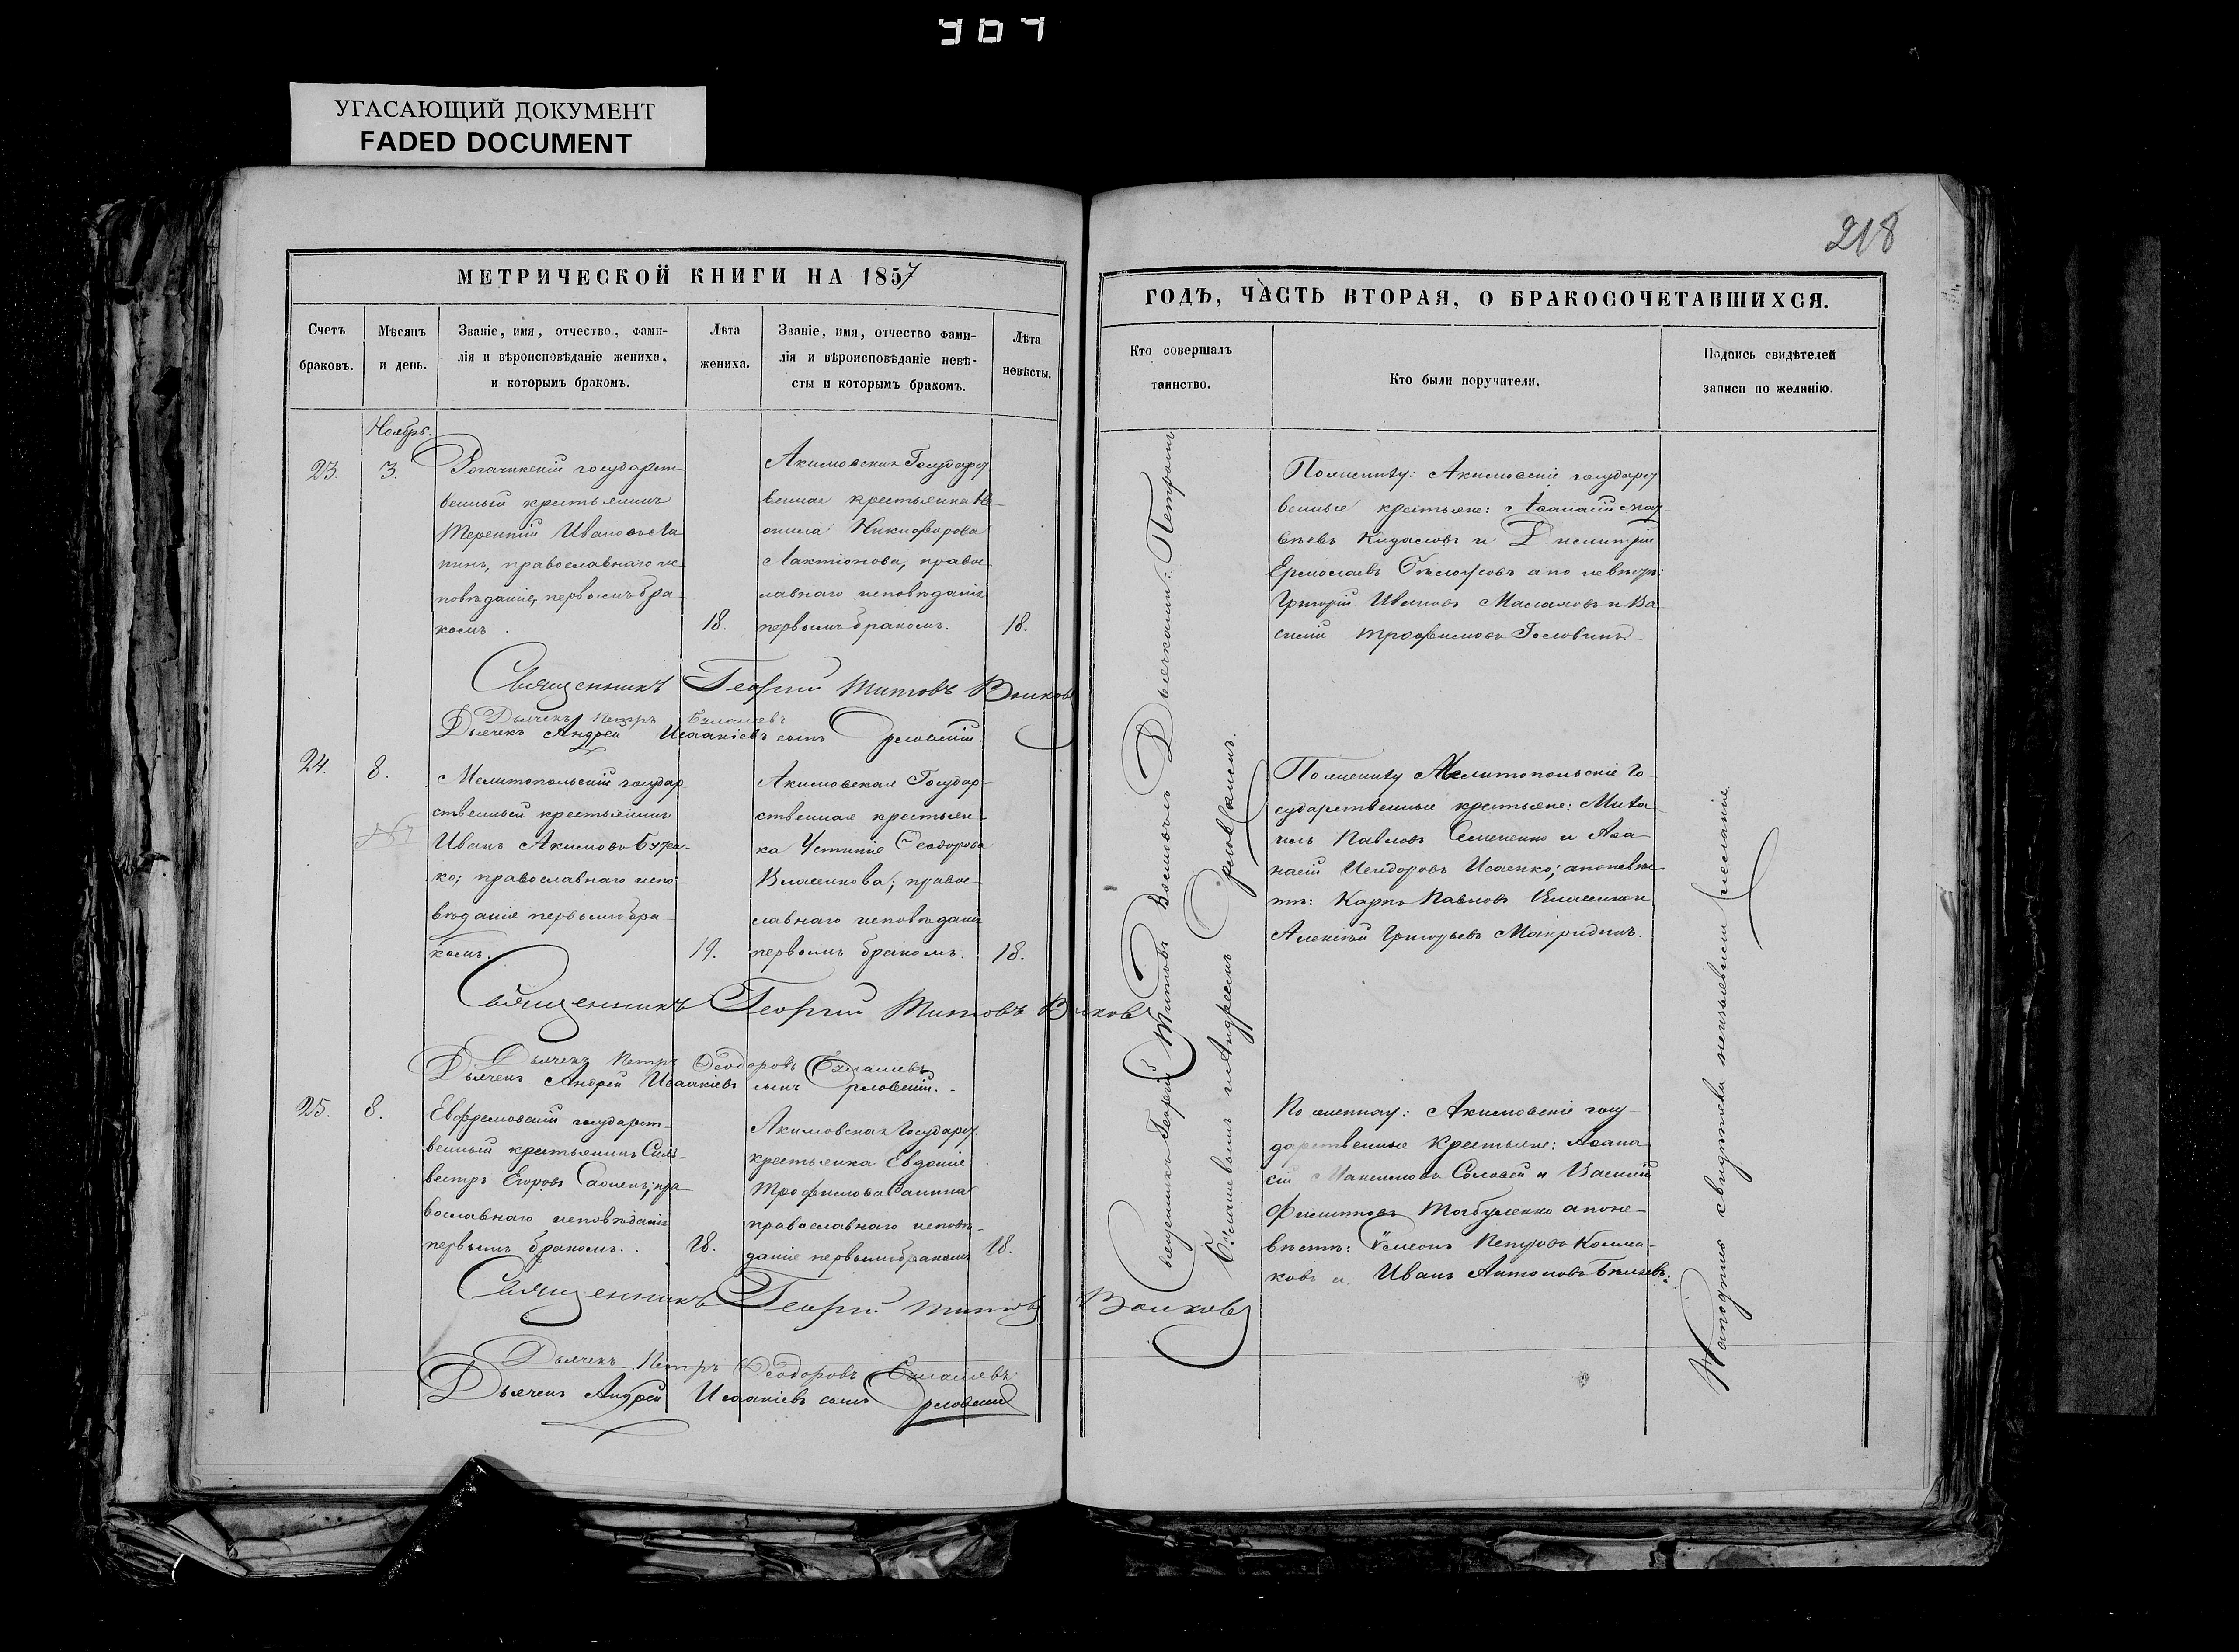 307
УГАСАЮЩИЙ ДОКУМЕНТ
FADED DOCUMENT
218
МЕТРИЧЕСКОЙ КНИГИ НА 1857
Счетъ
браковъ.
Мѣсяцъ
и день.
Званіе, имя, отчество, фами-
лія и вѣроисповѣданіе жениха,
и которымъ бракомъ.
Лѣта
жениха.
Званіе, имя, отчество фами-
лія и вѣроисповѣданіе невѣ-
сты и которымъ бракомъ.
Лѣта
невѣсты.
Ноябрь.
23.
3.
Рогачикскій государст-
венный крестьянинъ
Терентій Ивановъ Ла
пинъ, православнаго ис-
повѣданія, первымъ бра-
комъ.
18.
Акимовская Государст
венная крестьянка
Никифорова
Лактіонова, право-
славнаго исповѣданія
первымъ бракомъ.
18.
Священникъ Георгій Титовъ Волковъ
Дьячекъ Петръ
Дьячекъ Андрей Исаакіевъ сынъ Орловскій.
24.
8.
Мелитопольскій государ
ственный крестьянинъ
Иванъ Акимовъ
ко; православнаго испо-
вѣданія первымъ бра-
комъ.
19.
Акимовская Государ-
ственная крестьян-
ка Устинія Ѳеодорова
Власенкова; право-
славнаго исповѣданія
первымъ бракомъ.
18.
Священникъ Георгій Титовъ Волковъ
Дьячекъ Петръ Ѳеодоровъ
Дьячекъ Андрей Исаакіевъ сынъ Орловскій.
25.
8.
Евфремовскій государст-
венный крестьянинъ Силь-
вестръ Егоровъ пра-
вославнаго исповѣданія
первымъ бракомъ.
18.
Акимовская Государст.
крестьянка Евдокія
Трофимова Санина
православнаго исповѣ-
данія первымъ бракомъ
18.
Священникъ Георгій Титовъ Волковъ
Дьячекъ Петръ Ѳеодоровъ
Дьячекъ Андрей Исаакіевъ сынъ Орловскій
ГОДЪ, ЧАСТЬ ВТОРАЯ, О БРАКОСОЧЕТАВШИХСЯ.
Кто совершалъ
таинство.
Кто были поручители.
Подпись свидѣтелей
записи по желанію.
Священникъ Георгій Титовъ Волковъ съ Дьячками: Петромъ
и Андреемъ Орловскимъ.
По жениху: Акимовскіе государст
венные крестьяне: Аѳанасій Мат-
вѣевъ и Димитрій
Ермолаевъ Бѣлоусовъ а по невѣстѣ:
Григорій Ивановъ Масаловъ и Ва
силій Трофимовъ Головинъ.
По жениху Мелитопольскіе Го-
сударственные крестьяне: Миха-
илъ Павловъ Семененко и Аѳа-
насій Исидоровъ Исаенко; а по невѣс-
тѣ: Карпъ Павловъ Власенко и
Алексѣй Григорьевъ Макридинъ.
По жениху: Акимовскіе госу-
дарственные крестьяне: Аѳана-
сій Максимовъ Соловей и Василій
Филипповъ а по не-
вѣстѣ: Симеонъ Петровъ Колма-
ковъ и Иванъ Антоновъ Бѣляевъ.
На подпись свидѣтели неизъявили желанія.